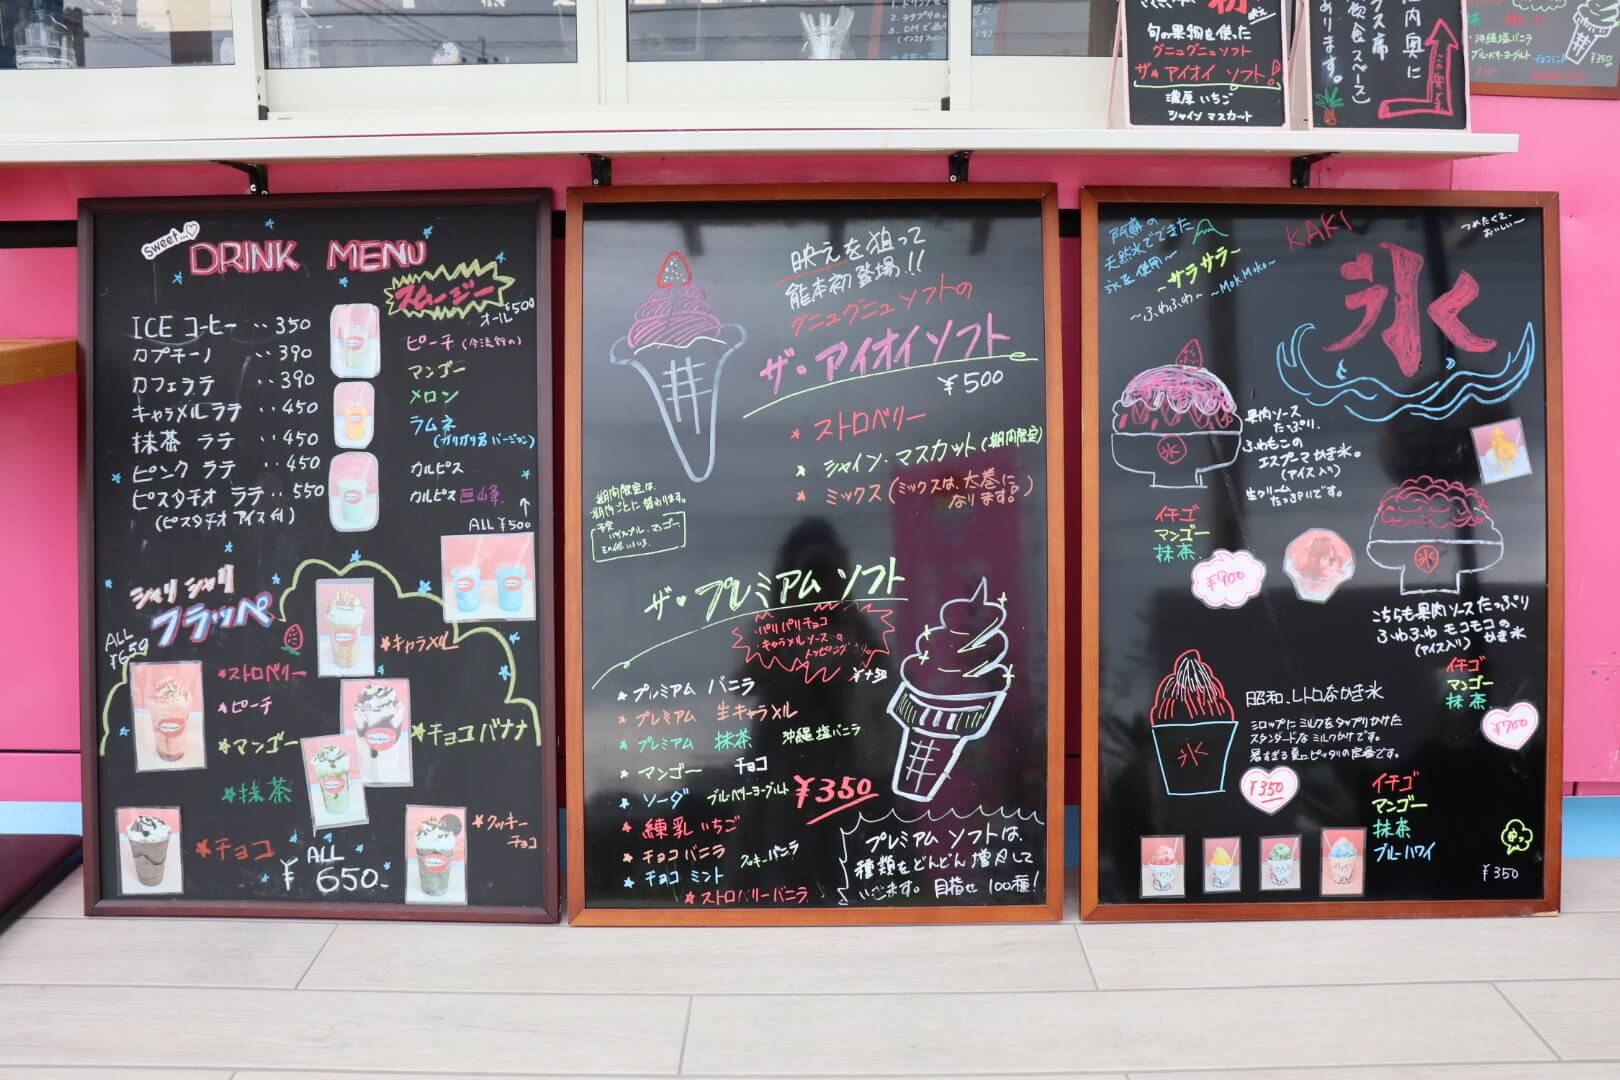 旬の果物を使った
グニュグニュソフト
ザ・アイオイソフト
濃厚いちご
シャインマスカット
内奥に
クス席
飲食スペース)
あります。
・沖縄塩バニラ
ブルーベリーヨーグルト チョコミント
¥350
Sweet...♡
DRINK MENU
スムージー
オール500
ICE コーヒー ‥350
カプチーノ ‥390
カフェラテ ‥390
キャラメルラテ ‥450
抹茶 ラテ ‥450
ピンク ラテ ‥450
ピスタチオ ラテ ‥550
(ピスタチオ アイス付)
ピーチ (今流行の)
マンゴー
メロン
ラムネ
(ガリガリ君バージョン)
カルピス
カルピス 巨峰
ALL ¥500
シャリシャリ
フラッペ
ALL
¥650
★ストロベリー
★ピーチ
★マンゴー
★抹茶
★チョコ
★キャラメル
★チョコバナナ
★クッキー
チョコ
¥ ALL
650-
映えを狙って
熊本初登場!!
グニュグニュソフトの
ザ・アイオイソフト
¥500
★ ストロベリー
★ シャイン・マスカット(期間限定)
★ ミックス(ミックスは、大巻に
なります。)
期間限定は、
期間ごとに替わります。
予定
パイナップル、マンゴー
ザ・プレミアム ソフト
パリパリチョコ
・キャラメルソースの
トッピング
¥+50
★ プレミアム バニラ
★ プレミアム 生キャラメル
★ プレミアム 抹茶 沖縄塩バニラ
★ マンゴー チョコ
★ ソーダ ブルーベリーヨーグルト
¥350
★ 練乳いちご
★ チョコバニラ クッキーバニラ
★ チョコミント
★ ストロベリーバニラ
プレミアム ソフトは、
種類をどんどん増やして
いきます。目指せ100種!
阿蘇の
天然氷でできた
氷を使用〜
〜サラサラ〜
〜ふわふわ〜 〜MokMoko〜
KAKI
氷
つめたくて、
おいしい〜
氷
果肉ソース
たっぷり、
ふわもこの
エスプーマかき氷。
(アイス入り)
生クリーム
たっぷりです。
イチゴ
マンゴー
抹茶
¥900
氷
こちらも果肉ソースたっぷり
ふわふわ モコモコの
かき氷
(アイス入り)
イチゴ
マンゴー
抹茶
¥700
氷
昭和レトロなかき氷
シロップにミルクをタップリかけた
スタンダードなミルクかけです。
暑すぎる夏にピッタリの定番です。
¥350
イチゴ
マンゴー
抹茶
ブルーハワイ
¥350